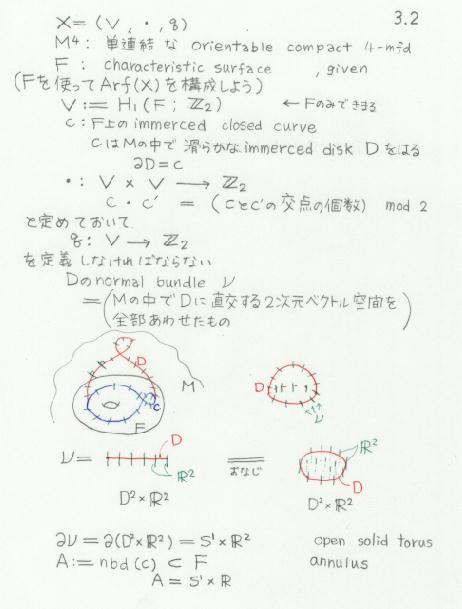 3.2
X = (V, ・, g)
M⁴: 単連結な orientable compact 4-mfd
F: characteristic surface , given
(Fを使ってArf(X)を構成しよう)
V := H₁(F; ℤ₂) ← Fのみできまる
C: F上の immerced closed curve
CはMの中で滑らかな immersed disk Dをはる
∂D = C
・: V × V → ℤ₂
C・C' = (CとC'の交点の個数) mod 2
と定めておいて
g: V → ℤ₂
を定義しなければならない
Dの normal bundle ν
= (Mの中でDに直交する2次元ベクトル空間を
全部あわせたもの)
D
M
C
F
D
ν
ν =
D
ℝ²
D² × ℝ²
おなじ
ℝ²
D
D² × ℝ²
∂ν = ∂(D² × ℝ²) = S¹ × ℝ² open solid torus
A := nbd(c) ⊂ F annulus
A = S¹ × ℝ